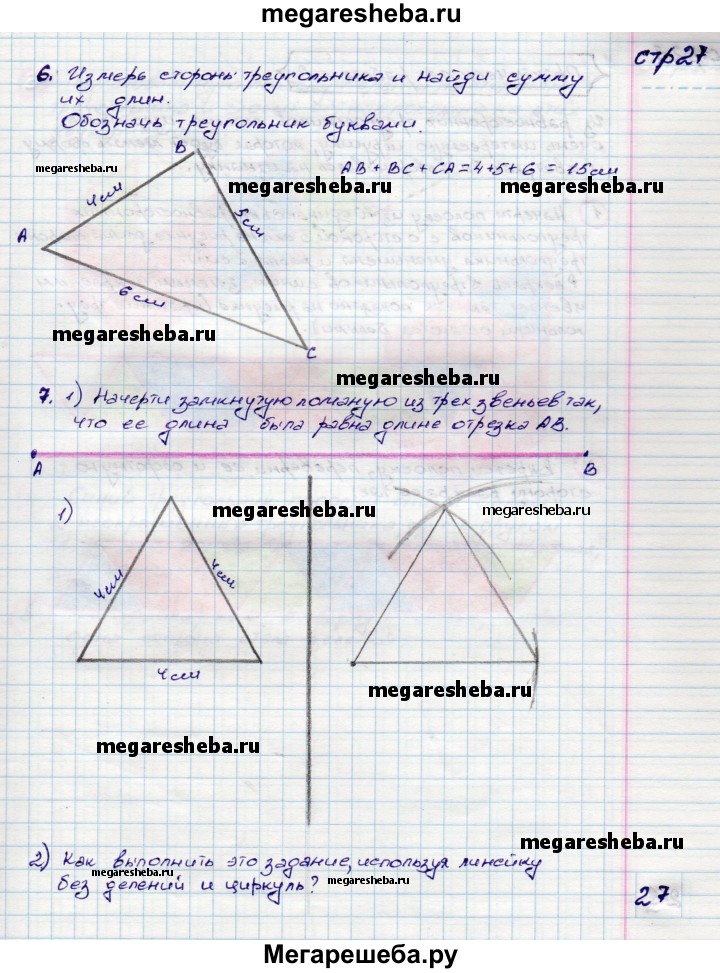 megaresheba.ru
стр27
6. Измерь стороны треугольника и найди сумму
их длин.
Обозначь треугольник буквами.
B
AB + BC + CA = 4+5+6 = 15см
megaresheba.ru
megaresheba.ru
megaresheba.ru
4см
5см
A
6см
megaresheba.ru
C
megaresheba.ru
7. 1) Начерти замкнутую ломаную из трех звеньев так,
что ее длина была равна длине отрезка AB.
A
B
1)
megaresheba.ru
megaresheba.ru
4см
4см
4см
megaresheba.ru
megaresheba.ru
megaresheba.ru
2) Как выполнить это задание, используя линейку
без делений и циркуль?
megaresheba.ru
megaresheba.ru
27
Мегарешеба.ру